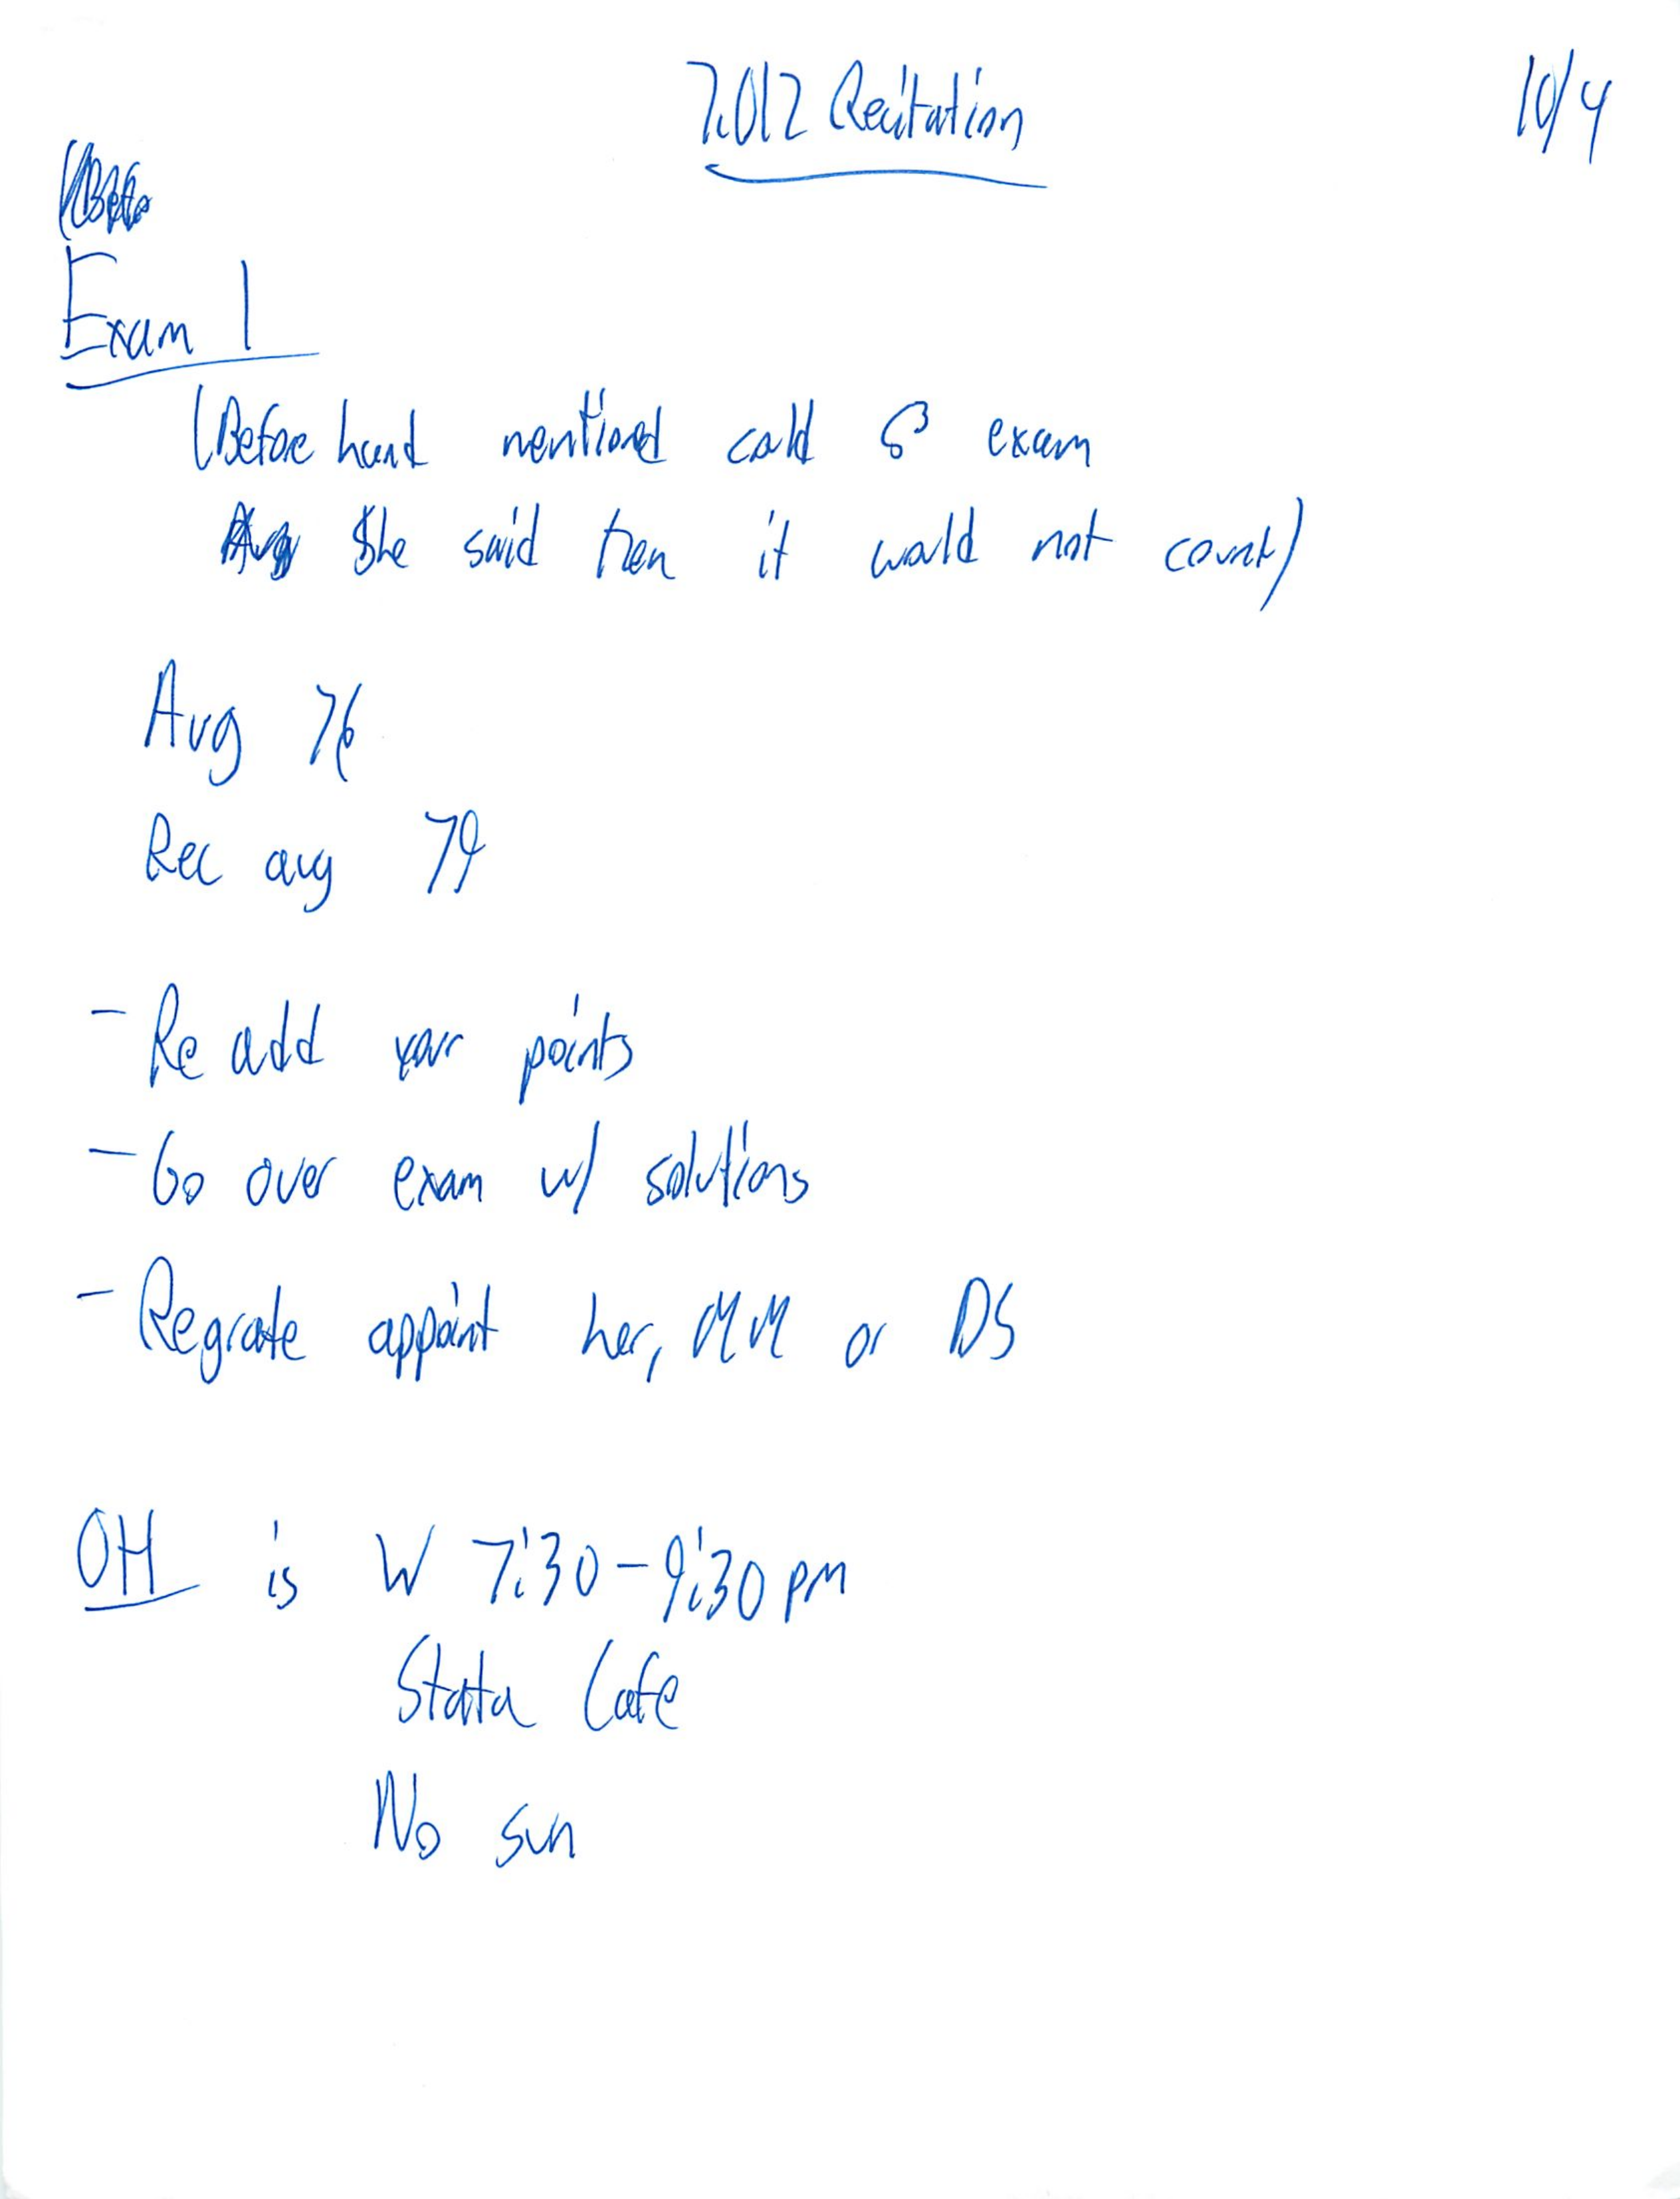 7.012 Recitation
10/4
Exam 1
(Before hand mentioned could exam
She said then it would not count)
Avg 76
Rec avg 79
- Re add your points
- Go over exam w/ solutions
- Regrate appoint her, MM or DS
OH is W 7:30-9:30 pm
Stata Cafe
No sun